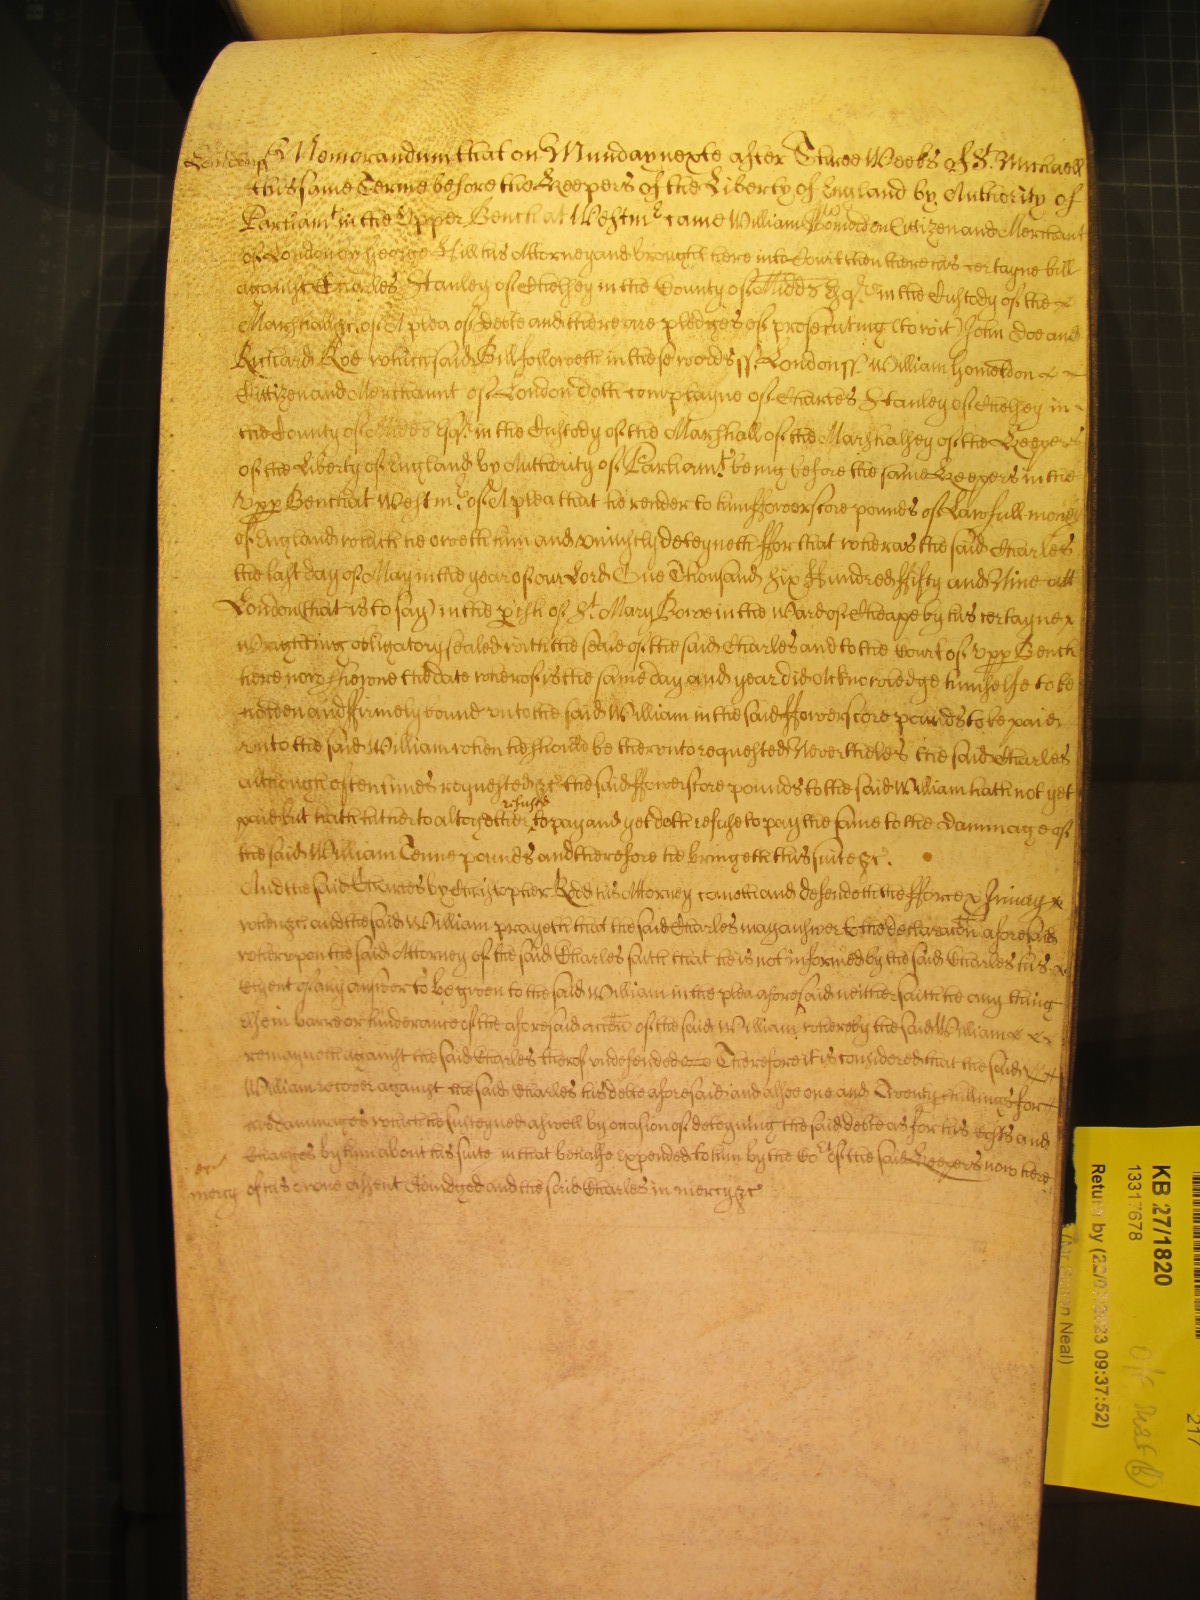 Londonss Memorandum that on Munday nexte after Three Weeks of St. Michaell
this same Terme before the Keepers of the Liberty of England by Authority of
Parliamt in the Upper Bench at Westmr came William Cittizen and Merchant
of London by George Hill his Attorney and brought here into Court then there his certayne bill
against Charles Stanley of Chelsey in the County of Midds Esqr in the Custody of the
Marshall &c. of A plea of Debte and there are pledges of prosecuting (to wit) John Doe and
Richard Roe which said Bill followeth in these words ss. London ss. William
Cittizen and Merchaunt of London doth complayne of Charles Stanley of Chelsey in
the County of Midds Esqr. in the Custody of the Marshall of the Marshalsey of the Keepers
of the Liberty of England by Authority of Parliamt. being before the same Keepers in the
Upp Bench at Westmr. of A plea that he render to him ffowerscore pounds of Lawfull money
of England which he oweth him and uniustly deteyneth ffor that wheras the said Charles
the last day of May in the year of our Lord One Thousand Six Hundred ffifty and Nine att
London (that is to say) in the pish of St. Mary Bowe in the Ward of Cheape by his certayne
Wrighting obligatory sealed with the seale of the said Charles and to the Court of Upp Bench
here now showne the date wherof is the same day and year did Acknowledge himselfe to be
holden and ffirmely bound unto the said William in the said ffowerscore pounds to be paied
unto the said William when he should be therunto requested Neverthelesse the said Charles
although oftentimes requested &c the said ffowerscore pounds to the said William hath not yet
paid but hath hitherto altogether refused to pay and yet doth refuse to pay the same to the dammage of
the said William Tenne pounds and therefore he bringeth this suite &c.
And the said Charles by Christopher Rod his Attorney cometh and defendeth the fforce & Iniury
when &c. and the said William prayeth that the said Charles may answer to the declaracon aforesaid
wherupon the said Attorney of the said Charles saith that he is not informed by the said Charles his
Clyent of any answer to be given to the said William in the plea aforesaid neither saith he any thing
else in barre or hinderance of the aforesaid accon of the said William whereby the said William
remayneth against the said Charles therof undefended Therefore it is considered that the said
William recover against the said Charles his debte aforesaid and alsoe one and Twenty shillings for
his dammages which he susteyned aswell by occasion of deteyning the said debte as for his Costs and
Charges by him about his suite in that behalfe expended to him by the Cort of the said Keepers now here
mercy of his owne assent Adiudged and the said Charles in mercy &c
KB 27/1820
13317678
Return by (22/0 2023 09:37:52)
Neal)
217